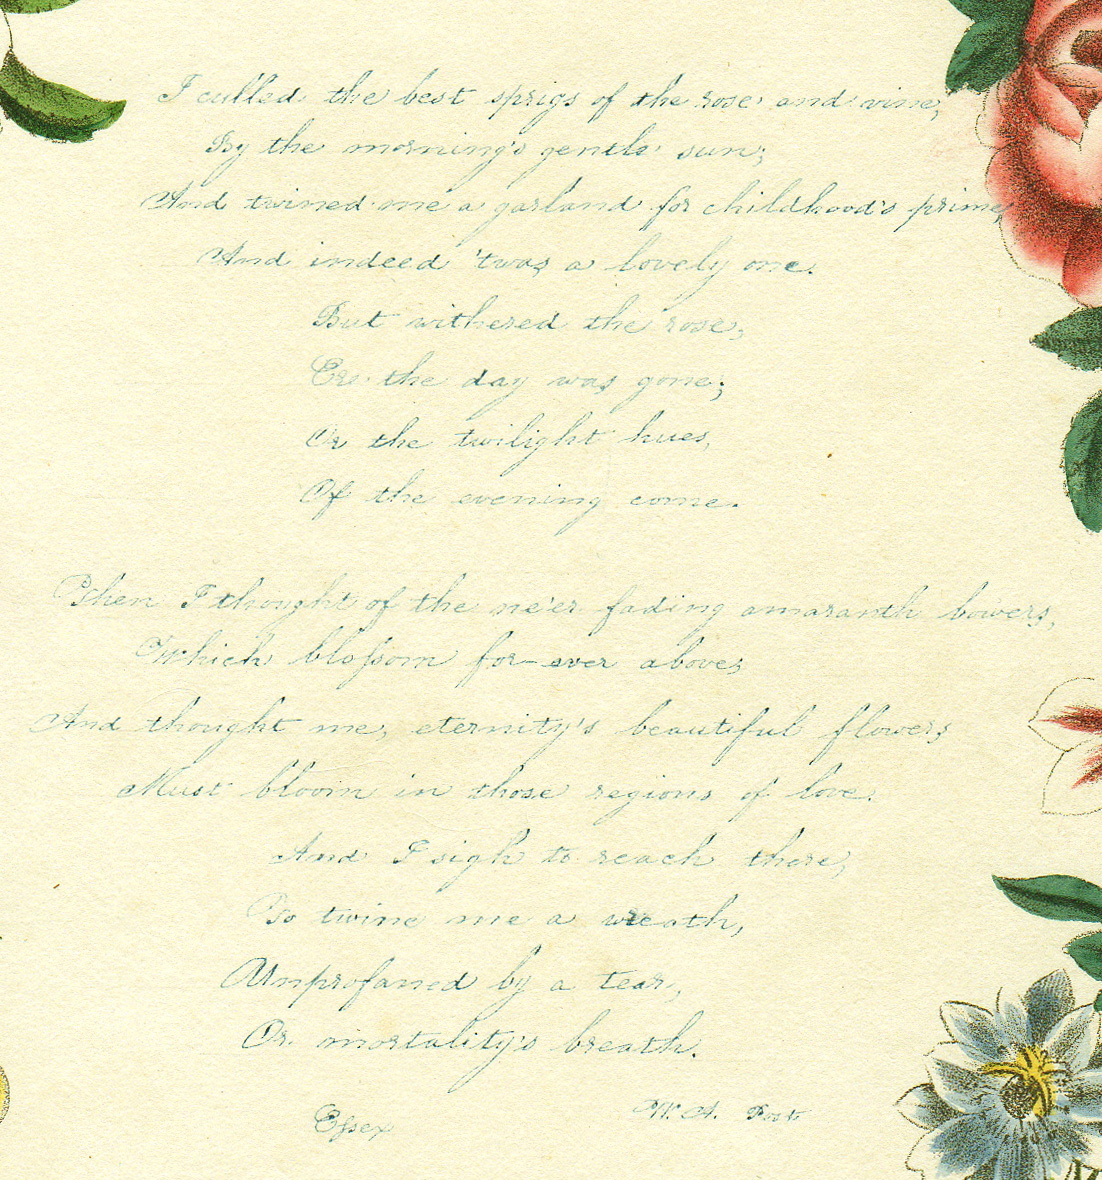 I culled the best sprigs of the rose and vine,
By the morning's gentle sun;
And twined me a garland for childhood's prime,
And indeed 'twas a lovely one.
But withered the rose,
Ere the day was gone;
Or the twilight hues,
Of the evening come.
Then I thought of the ne'er fading amaranth bowers,
Which blossom for-ever above,
And thought me, eternity's beautiful flowers
Must bloom in those regions of love.
And I sigh to reach there,
To twine me a wreath,
Unprofaned by a tear,
Or mortality's breath.
Essex
W. A. Post